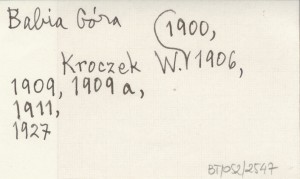 Babia Góra
1900,
Kroczek W. 1906,
1909, 1909a,
1911,
1927
BT/052/2547